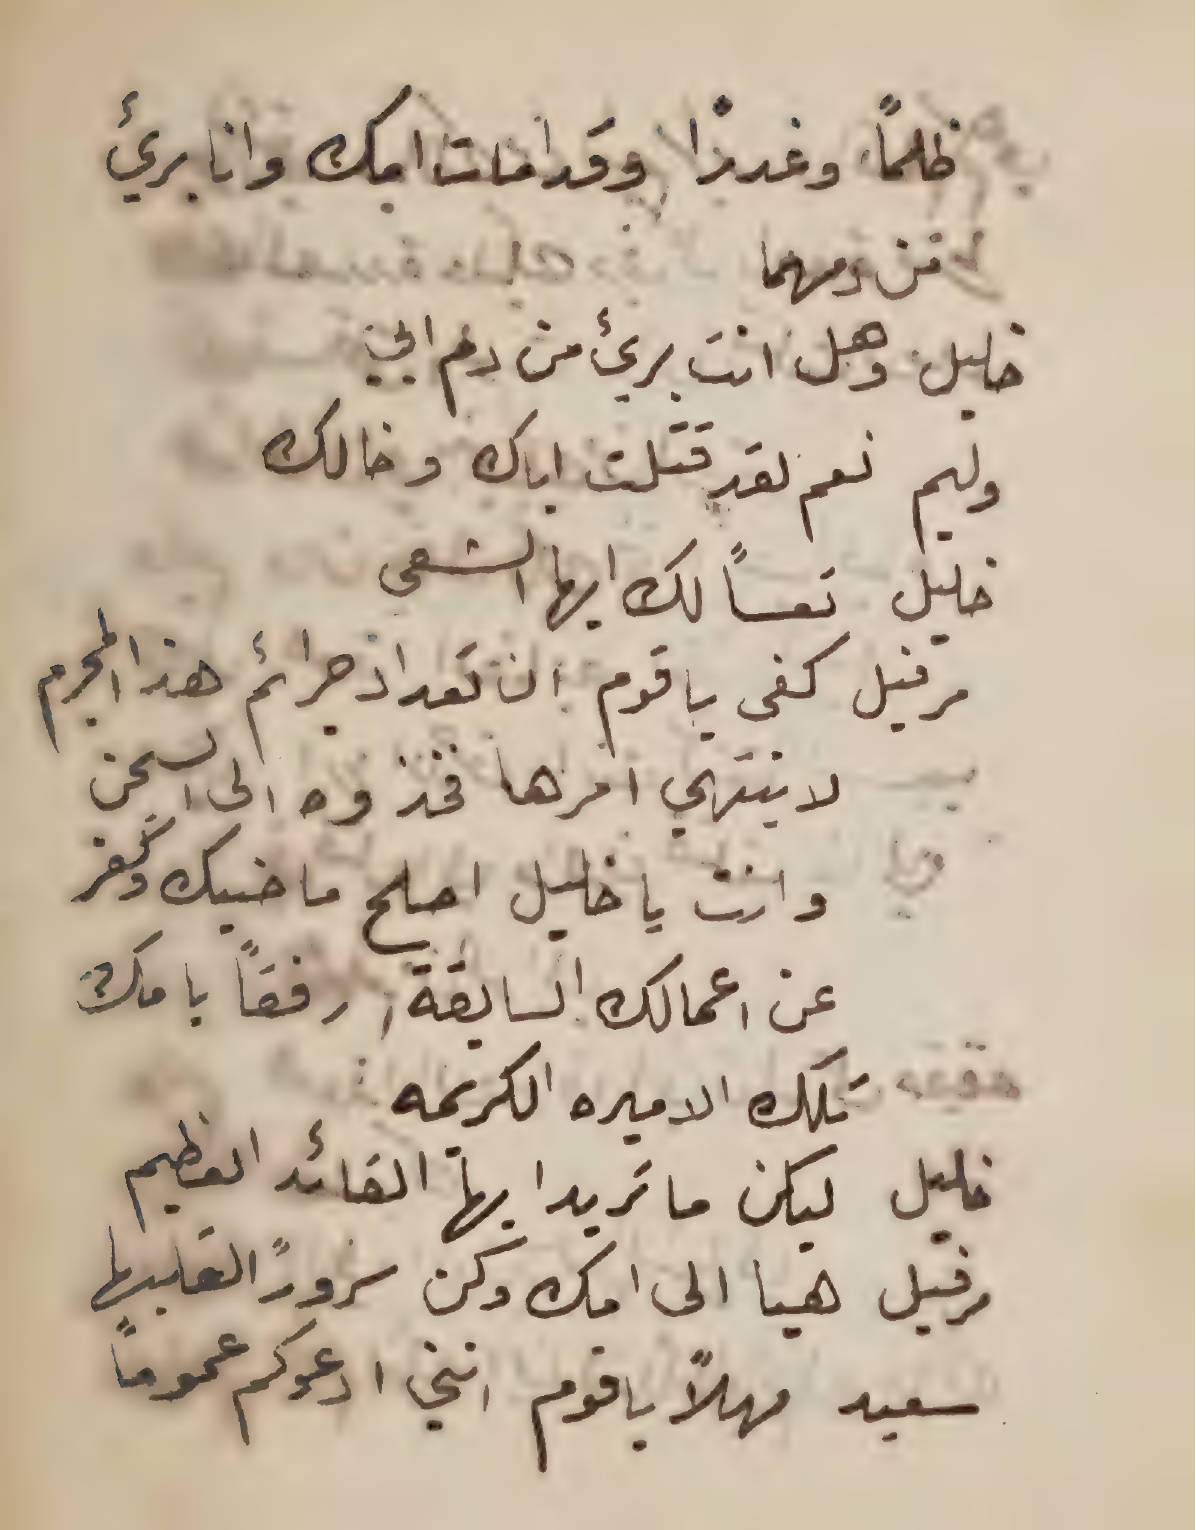 ظلماً وغدرًا وقد ماتت امك وانا بريٌ
من دمهما
خليل وهل انت بريٌ من دم ابي
وليم نعم لقد قتلت اباك وخالك
خليل تعساً لك ايها الشقى
مرقيل كفى يا قوم ان تعداد جرائم هذا المجرم
لا ينتهي امرها فخذوه الى السجن
وانت يا خليل اصلح ماضيك وكفر
عن اعمالك السابقة رفقاً بامك
تلك الاميره الكريمه
خليل ليكن ما تريد ايها القائد العظيم
مرقيل هيا الى امك وكن سروراً لقلبها
سعيد مهلاً يا قوم انني ادعوكم عموماً